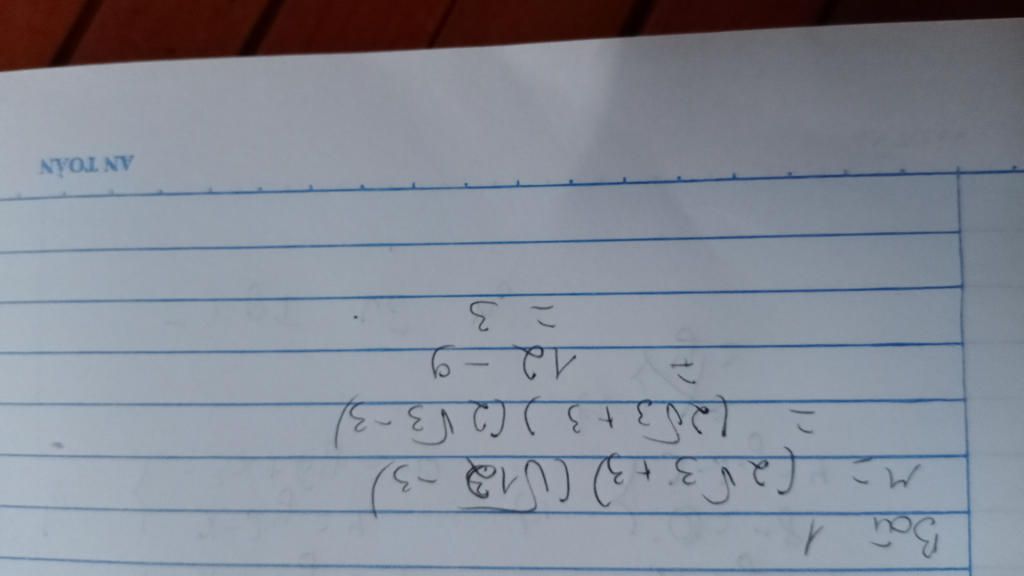 Bài 1
M = (2√3 + 3)(√12 - 3)
= (2√3 + 3)(2√3 - 3)
= 12 - 9
= 3
AN TOÀN